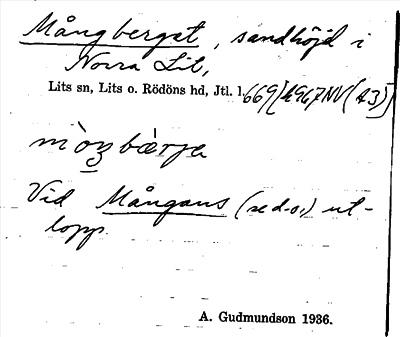 Mångberget, sandhöjd i
Norra Lit,
Lits sn, Lits o. Rödöns hd, Jtl. l. 669
Vid Mångans (se d.o.) ut-
lopp.
A. Gudmundson 1936.